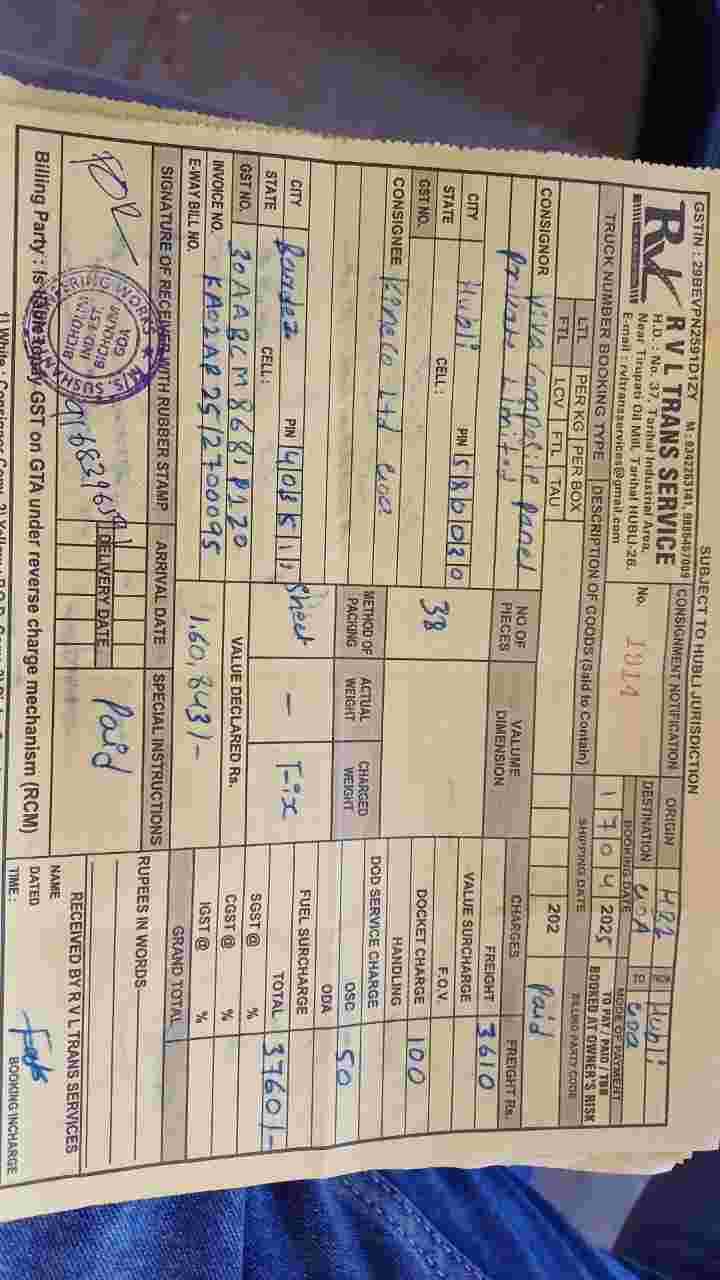 SUBJECT TO HUBLI JURISDICTION
GSTIN : 29BEVPN2591D1ZY M : 9342263141, 9886457009
R V L TRANS SERVICE
H.D. : No. 37, Tarihal Industrial Area,
Near Tirupati Oil Mill, Tarihal HUBLI-26.
E-mail : rvltransservices@gmail.com
CONSIGNMENT NOTIFICATION
No. 1014
ORIGIN HBL FROM Hubli
DESTINATION GOA TO Goa
BOOKING DATE
1 7 0 4 2025
MODE OF PAYMENT
TO PAY / PAID / TBB
BOOKED AT OWNER'S RISK
TRUCK NUMBER BOOKING TYPE DESCRIPTION OF GOODS (Said to Contain)
LTL PER KG PER BOX
FTL LCV FTL TAU
SHIPPING DATE
202
BILLING PARTY CODE
Paid
CONSIGNOR Viva Composite Panel
Private Limited
CITY Hubli PIN 580030
STATE CELL :
GST NO.
NO OF PIECES
38
VALUME DIMENSION
CHARGES FREIGHT Rs.
FREIGHT 3610
VALUE SURCHARGE
F.O.V.
DOCKET CHARGE 100
HANDLING
DOD SERVICE CHARGE
OSC 50
ODA
FUEL SURCHARGE
TOTAL 3760/-
SGST @ %
CGST @ %
IGST @ %
GRAND TOTAL
CONSIGNEE Kineco Ltd Goa
CITY Bardez PIN 403511
STATE CELL :
GST NO. 30AABCM8681P1Z0
INVOICE NO. KA02AP2512700095
E-WAY BILL NO.
METHOD OF PACKING ACTUAL WEIGHT CHARGED WEIGHT
Sheet — Fix
VALUE DECLARED Rs.
1,60,843/-
SIGNATURE OF RECEIVER WITH RUBBER STAMP ARRIVAL DATE SPECIAL INSTRUCTIONS
DELIVERY DATE
Paid
RUPEES IN WORDS
M/S. SUSHANT
BICHOLIM
GOA
Billing Party : Is liable to pay GST on GTA under reverse charge mechanism (RCM)
RECEIVED BY R V L TRANS SERVICES
NAME
DATED
TIME :
BOOKING INCHARGE